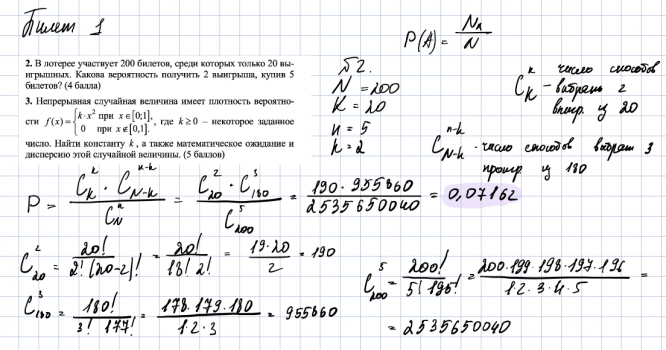 Билет 1
P(A) = N_A / N
2. В лотерее участвует 200 билетов, среди которых только 20 вы-
игрышных. Какова вероятность получить 2 выигрыша, купив 5
билетов? (4 балла)
3. Непрерывная случайная величина имеет плотность вероятно-
сти f(x) = { k·x² при x∈[0;1], 0 при x∉[0,1]. , где k ≥ 0 – некоторое заданное
число. Найти константу k, а также математическое ожидание и
дисперсию этой случайной величины. (5 баллов)
№2.
N = 200
K = 20
n = 5
k = 2
C_K^k число способов
- выбрать 2
выигр. из 20
C_{N-k}^{n-k} - число способов выбрать 3
проигр. из 180
P = C_K^k · C_{N-k}^{n-k} / C_N^n = C_20^2 · C_180^3 / C_200^5 = 190 · 955860 / 2535650040 = 0,07162
C_20^2 = 20! / 2!(20-2)! = 20! / 18! 2! = 19·20 / 2 = 190
C_180^3 = 180! / 3! 177! = 178·179·180 / 1·2·3 = 955860
C_200^5 = 200! / 5! 195! = 200·199·198·197·196 / 1·2·3·4·5 =
= 2535650040